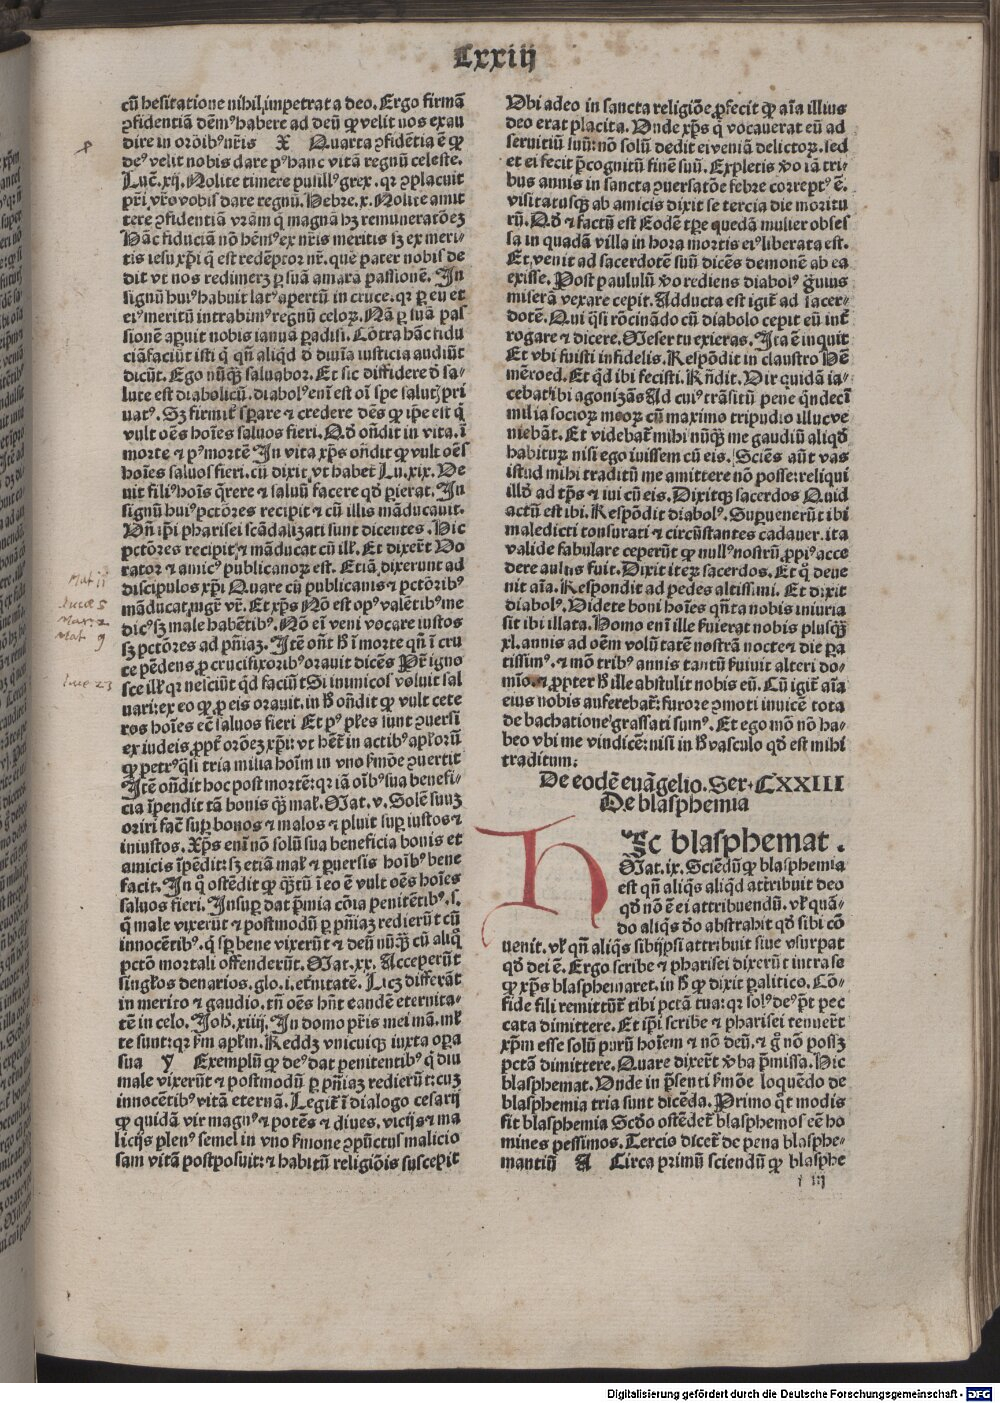 Lxxiij
cū hesitatione nihil impetrat a deo. Ergo firmā
ꝯfidentiā dēmꝰ habere ad deū ꝙ velit nos exau
dire in orōibꝰ nr̄is X Quarta ꝯfidētia ē ꝙ
deꝰ velit nobis dare pꝰ hanc vitā regnū celeste.
Luc̄. xij. Nolite timere pusillꝰ grex. qꝛ ꝯplacuit
pr̄i vr̄o vobis dare regnū. Hebre. x. Nolite amit
tere ꝯfidentiā vr̄am q̄ magnā hꝫ remuneratōeꝫ
Hāc fiduciā nō hēmꝰ ex nr̄is meritis sꝫ ex meri-
tis iesu xp̄i q̄ est redēptor nr̄. quē pater nobis de
dit vt nos redimeret ꝑ suā amarā passionē. In
signū huiꝰ habuit latꝰ apertū in cruce. qꝛ ꝑ eū et
eiꝰ meritū intrabimꝰ regnū celoꝝ. Nā ꝑ suā pas
sionē aꝑuit nobis ianuā ꝑadisi. Cōtra hāc fidu
ciā faciūt isti q̄ qn̄ aliqd̄ d̄ diuīa iusticia audiūt
dicūt. Ego nūq̄ꝫ saluabor. Et sic diffidere d̄ sa-
lute est diabolicū. diabolꝰ enī est oī spe salutꝭ pri
uatꝰ. Sꝫ firmit̄ sꝑare et credere dēs ꝙ ip̄e est q̄
vult oēs hoīes saluos fieri. Qd̄ on̄dit in vita. ī
morte ⁊ pꝰ mortē In vita xp̄s on̄dit ꝙ vult oēs
hoīes saluos fieri. cū dixit vt habet̄ Lu. xix. Ve
nit filiꝰ hoīs q̄rere ⁊ saluū facere qd̄ ꝑierat. In
signū huiꝰ pctōres recipit ⁊ cū illis māducauit.
Vn̄ ip̄i pharisei scādalizati sunt dicentes. Hic
pctōres recipit ⁊ māducat cū ill̄. Et dixer̄t Vo
rator ⁊ amicꝰ publicanoꝝ est. Etiā dixerunt ad
discipulos xp̄i Quare cū publicanis ⁊ pctōribꝰ
māducat mgr̄ vr̄. Et xp̄s Nō est opꝰ valētibꝰ me
dicꝰ sꝫ male habētibꝰ. Nō eī veni vocare iustos
sꝫ pctōres ad pn̄iaꝫ. Itē on̄t h̄ ī morte qn̄ ī cru
ce pēdens ꝓ crucifixoribꝰ orauit dicēs Pr̄ igno
sce ill̄ qꝛ nesciūt qd̄ faciūt Si inimicos voluit sal
uari: ex eo ꝙ ꝓ eis orauit. in h̄ on̄dit ꝙ vult cete
ros hoīes ec̄ saluos fieri Et pꝰ pl̄es sunt ꝯuersi
ex iudeis ꝓpt̄ orōeꝫ xp̄i: vt het̄ in actibꝰ apl̄orū
ꝙ petrꝰ q̄si tria milia hoīm in vno s̄mōe ꝯuertit
Itē on̄dit hoc post mortē: qꝛ iā oībꝰ sua benefi-
cia īpendit tā bonis q̄ꝫ mal̄. Mat. v. Solē suuꝫ
oriri fac̄ suꝑ bonos ⁊ malos ⁊ pluit suꝑ iustos ⁊
iniustos. Xp̄s enī nō solū sua beneficia bonis et
amicis īpendit: sꝫ etiā mal̄ ⁊ ꝑuersis hoībꝰ bene
facit. In q̄ ostēdit ꝙ q̄ꝫtū ī eo ē vult oēs hoīes
saluos fieri. Insuꝑ dat p̄mia cōia penitētibꝰ. s.
q̄ male vixerūt ⁊ postmodū ꝑ pn̄iaꝫ redierūt cū
innocētibꝰ. q̄ sꝑ bene vixerūt ⁊ deū nūq̄ꝫ cū aliq̄
pctō mortali offenderūt. Mat. xx. Acceperūt
singl̄os denarios. glo. i. et̄nitatē. Licꝫ differāt
in merito ⁊ gaudio. tn̄ oēs hn̄t eandē eternita-
tē in celo. Joh̄. xiiij. In domo pr̄is mei mā. ml̄
te sunt: qꝛ s̄m apl̄m. Reddꝫ vnicuiqꝫ iuxta oꝑa
sua y Exemplū ꝙ deꝰ dat penitentibꝰ q̄ diu
male vixerūt ⁊ postmodū ꝑ pn̄iaꝫ redierūt: cuꝫ
innocētibꝰ vitā eternā. Legit̄ ī dialogo cesarij
ꝙ quidā vir magnꝰ ⁊ potēs ⁊ diues. vicijs ⁊ ma
licijs plenꝰ semel in vno s̄mone ꝯpūctus malicio
sam vitā postposuit: ⁊ habitū religiōis suscepit
Vbi adeo in sancta religiōe ꝓfecit ꝙ aīa illius
deo erat placita. Vnde xp̄s q̄ vocauerat eū ad
seruitiū suū: nō solū dedit ei veniā delictoꝝ. sed
et ei fecit p̄cognitū finē suū. Expletis v̄o iā tri-
bus annis in sancta ꝯuersatōe febre correptꝰ ē.
visitatusqꝫ ab amicis dixit se tercia die moritu
rū. Qd̄ ⁊ factū est Eodē tꝑe quedā mulier obses
sa in quadā villa in hora mortis eiꝰ liberata est.
Et venit ad sacerdotē suū dicēs demonē ab ea
exisse. Post paululū v̄o rediens diabolꝰ g̊uius
miserā vexare cepit. Adducta est igit̄ ad sacer-
dotē. Qui q̄si rōcinādo cū diabolo cepit eū int̄
rogare ⁊ dicere. Meser tu exieras. Ita ē inquit
Et vbi fuisti infidelis. Respōdit in claustro Hē
mēroed. Et qd̄ ibi fecisti. Rn̄dit. Vir quidā ia-
cebat ibi agonizās Ad cuiꝰ trāsitū pene q̄ndecī
milia socioꝝ meoꝝ cū maximo tripudio illuc ve
niebāt. Et videbat̄ mihi nūq̄ꝫ me gaudiū aliqd̄
habiturū nisi ego iuissem cū eis. Sciēs aūt vas
istud mihi traditū me amittere nō posse: reliqui
illd̄ ad tp̄s ⁊ iui cū eis. Dixitqꝫ sacerdos Quid
actū est ibi. Respōdit diabolꝰ. Supuenerūt ibi
maledicti tonsurati ⁊ circūstantes cadauer. ita
valide fabulare ceperūt ꝙ nullꝰ nostrū ꝓpi acce
dere ausus fuit. Dixit iteꝝ sacerdos. Et q̄ deue
nit aīa. Respondit ad pedes altissimi. Et dixit
diabolꝰ. Videte boni hoīes qn̄ta nobis iniuria
sit ibi illata. Homo enī ille s̄uierat nobis plusq̄ꝫ
xl. annis ad oēm volūtatē nostrā nocte ⁊ die ꝑa
tissimꝰ. ⁊ mō tribꝰ annis tantū s̄uiuit alteri do-
mīo. ⁊ ꝓpter h̄ ille abstulit nobis eū. Cū igit̄ aīa
eius nobis auferebat̄: furore ꝯmoti inuicē tota
de bachatione grassati sumꝰ. Et ego mō nō ha-
beo vbi me vindicē: nisi in h̄ vasculo qd̄ est mihi
traditum:
De eodē euāgelio. Ser. CXXIII
De blasphemia
Hic blasphemat.
Mat. ix. Sciēdū ꝙ blasphemia
est qn̄ aliq̄s aliqd̄ attribuit deo
qd̄ nō ē ei attribuendū. vl̄ quā-
do aliq̄s d̄o abstrahit qd̄ sibi cō
uenit. vl̄ qn̄ aliq̄s sibijpsi attribuit siue vsurpat
qd̄ dei ē. Ergo scribe ⁊ pharisei dixerūt intra se
ꝙ xp̄s blasphemaret. in h̄ ꝙ dixit palitico. Cō-
fide fili remittūt̄ tibi pctā tua: qꝛ solꝰ deꝰ p̄t pec
cata dimittere. Et ip̄i scribe ⁊ pharisei tenuer̄t
xp̄m esse solū purū hoīem ⁊ nō deū. ⁊ g̊ nō possꝫ
pctā dimittere. Quare dixer̄t v̄ba p̄missa. Hic
blasphemat. Vnde in p̄senti s̄mōe loquēdo de
blasphemia tria sunt dicēda. Primo q̄t modis
fit blasphemia Scd̄o ostēdet̄ blasphemos eē ho
mines pessimos. Tercio dicet̄ de pena blasphe-
mantiū A Circa primū sciendū ꝙ blasphe
i iij
Mat 11
Luce 5
Mar. 2
Mat 9
Luce 23
Digitalisierung gefördert durch die Deutsche Forschungsgemeinschaft - DFG